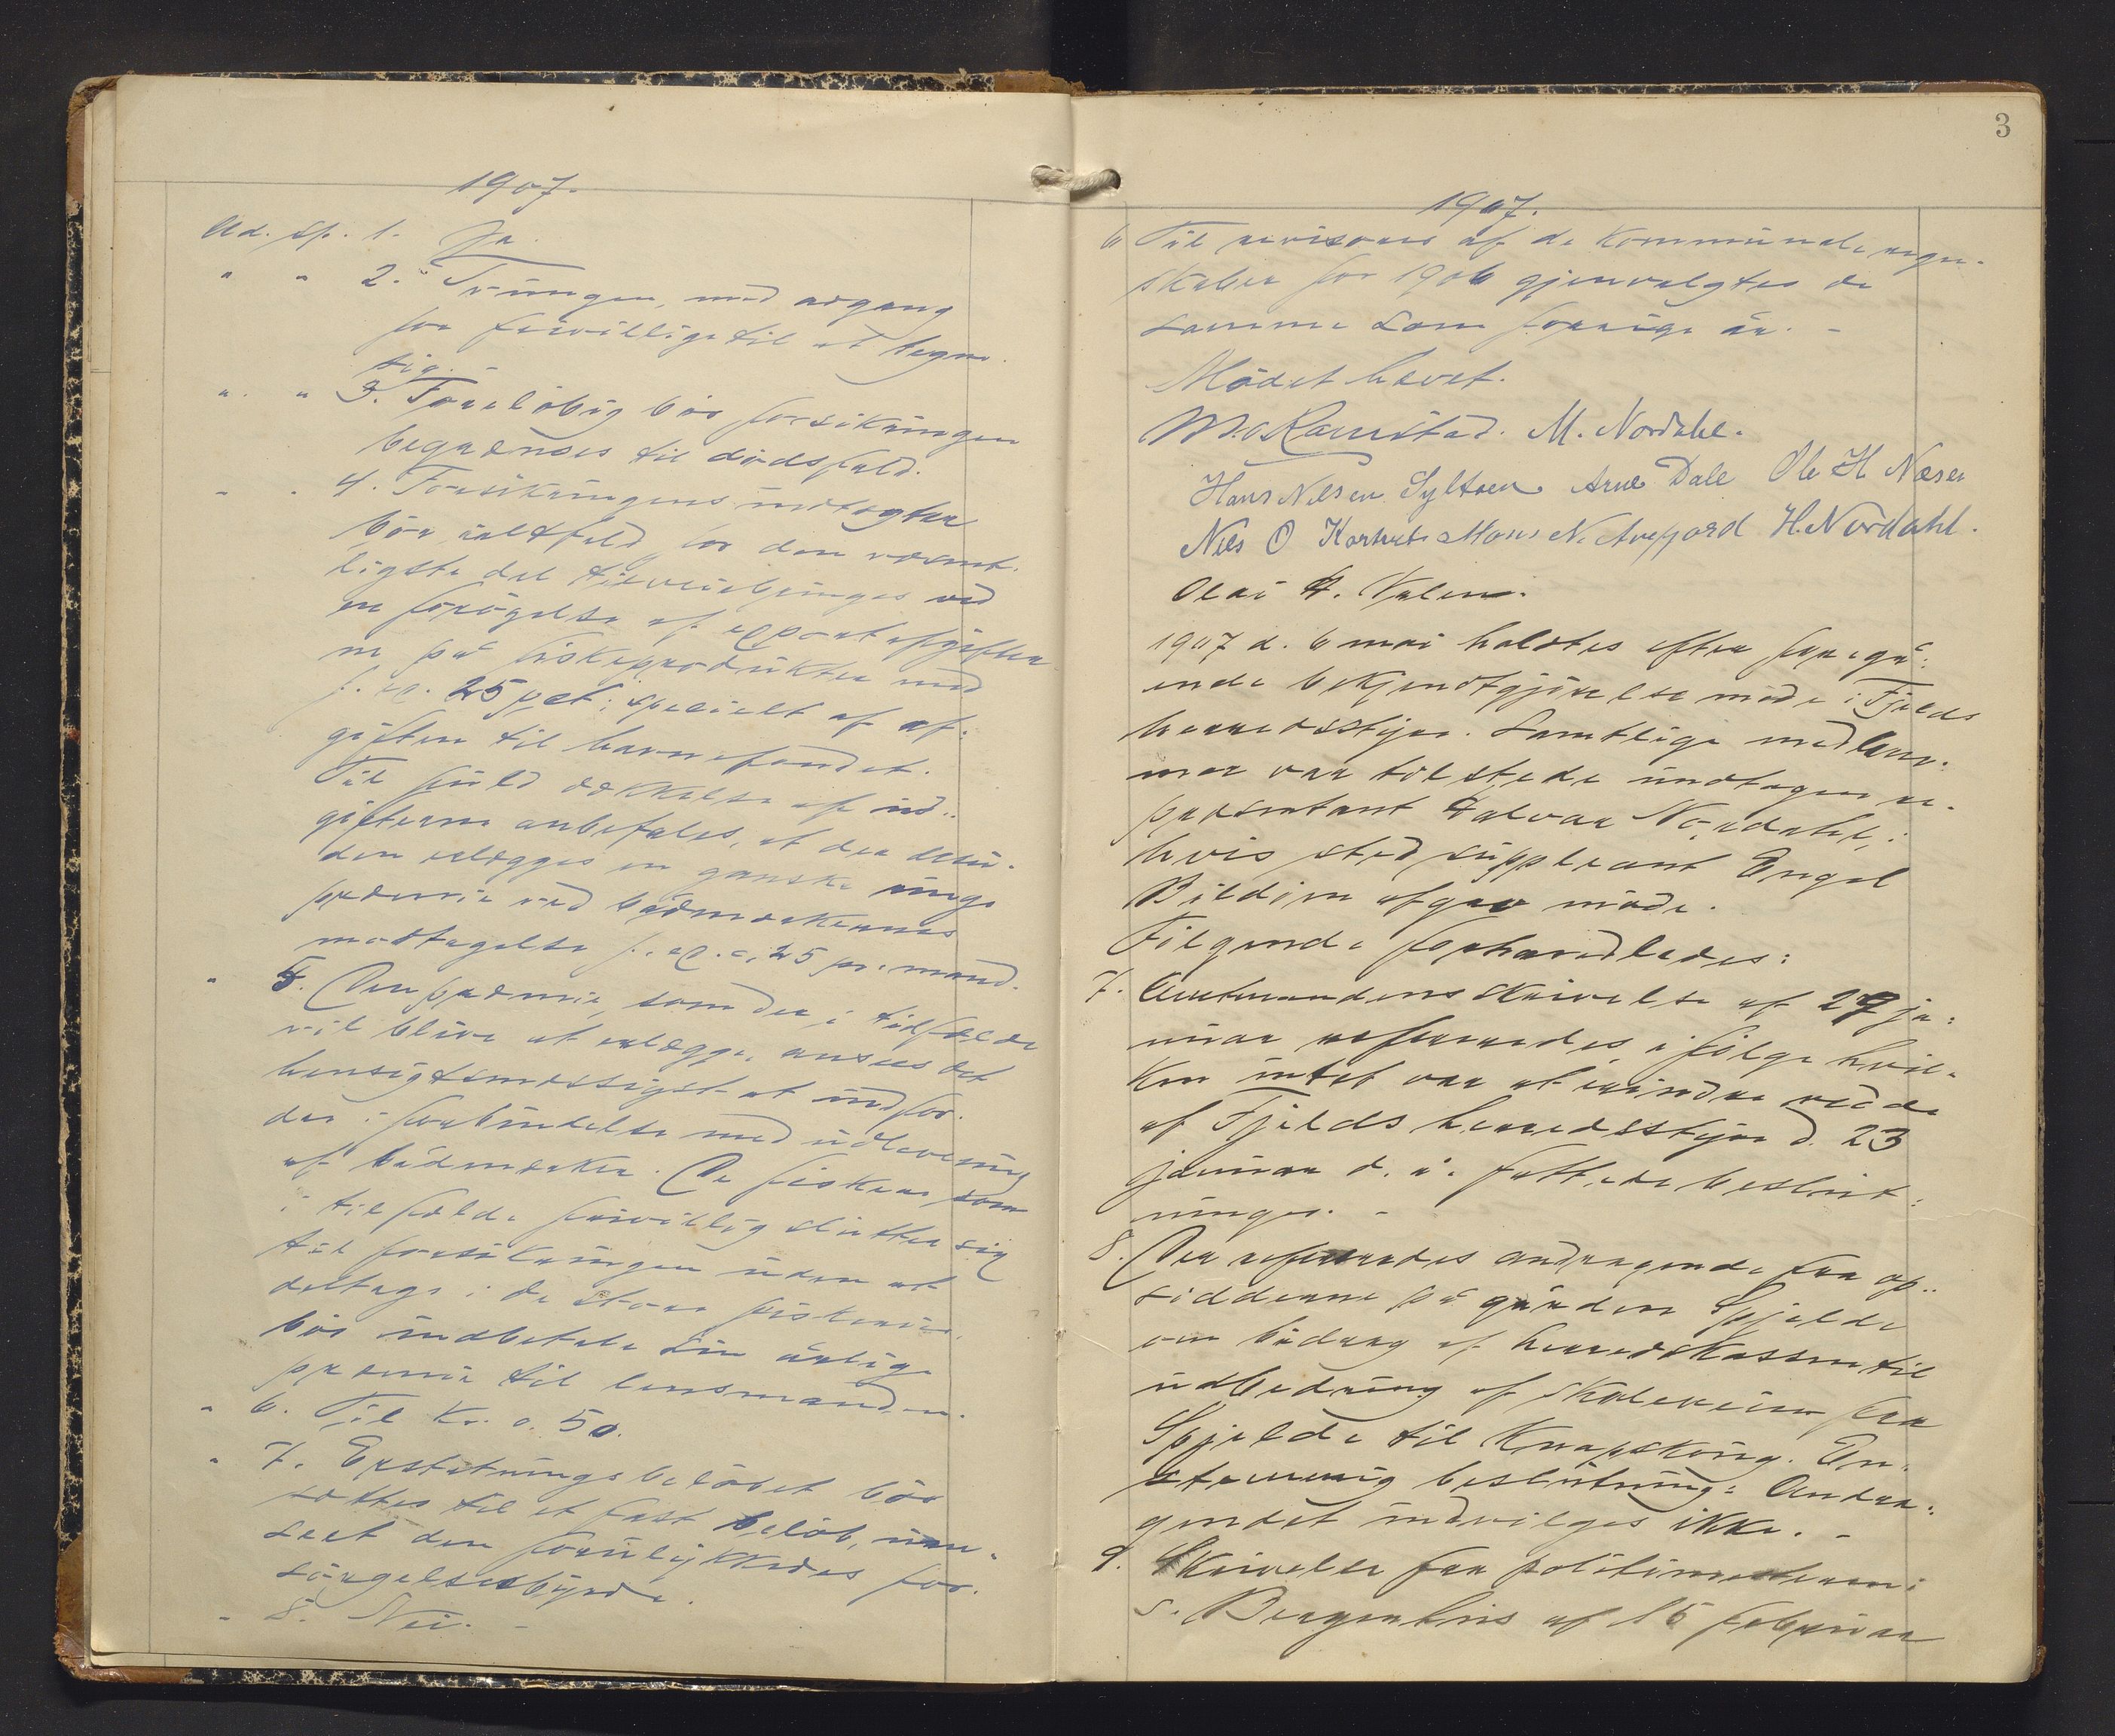 1907.
Ad. sp. 1. Ja.
" " 2. Tvungen, med adgang
for frivillige til at tegne
sig. -
" " 3. Foreløbig bør forsikringen
begrænses til dødsfald.
" " 4. Forsikringens indtægter
bør ialdfald for den væsent-
ligste del tilveiebringes ved
en forøgelse af exportafgifter
ne på fiskeprodukter med
f. ex. 25 pct. specielt af af-
giften til havnefondet.
Til fuld dækkelse af ud-
gifterne anbefales, at der desu-
den erlægges en ganske ringe
præmie ved bådmærkernes
modtagelse f. ex. 0,25 pr. mand.
" 5. Den præmie, som der i tilfælde
vil blive at erlægge, ansees det
hensigtsmæssigst at indfor-
des i forbindelse med udlevering
af bådmærker. De fiskere som
i tilfælde frivillig slutter sig
til forsikringen uden at
deltage i de store fiskerier,
bør indbetale sin årlige
præmie til lensmanden.
" 6. Til Kr. 0.50.
" 7. Erstatningsbeløbet bør
sættes til et fast beløb, uan-
seet den forulykkedes for-
sørgelsesbyrde.
" 8. Nei. -
3
1907.
6 Til revisorer af de kommunale regn-
skaber for 1906 gjenvalgtes de
samme som forrige år. -
Mødet hævet.
M. O Ramstad. M. Nordahl.
Hans Nilsen Syltøen Arne Dale Ole H Næsse
Nils O Mons N. H. Nordahl.
Olai A. Valen.
1907 d. 6 mai holdtes efter foregå-
ende bekjendtgjørelse møde i Fjelds
herredsstyre. Samtlige medlem-
mer var tilstede undtagen re-
præsentant Halvor Nordahl, i
hvis sted suppleant Engel
Bildøen afgav møde.
Følgende forhandledes:
7. Amtmandens skrivelse af 29 ja-
nuar refereredes, ifølge hvil-
ken intet var at erindre ved de
af Fjelds herredsstyre d. 23
januar d. å. fattede beslut-
ninger. -
8. Der refereredes andragende fra op-
sidderne på gården Spjelde
om bidrag af herredskassen til
udbedring af skoleveien fra
Spjelde til Knapskong. En-
stemmig beslutning: Andra-
gendet indvilges ikke. -
9. Skrivelse fra politimesteren i
s. Bergenhus af 15 februar